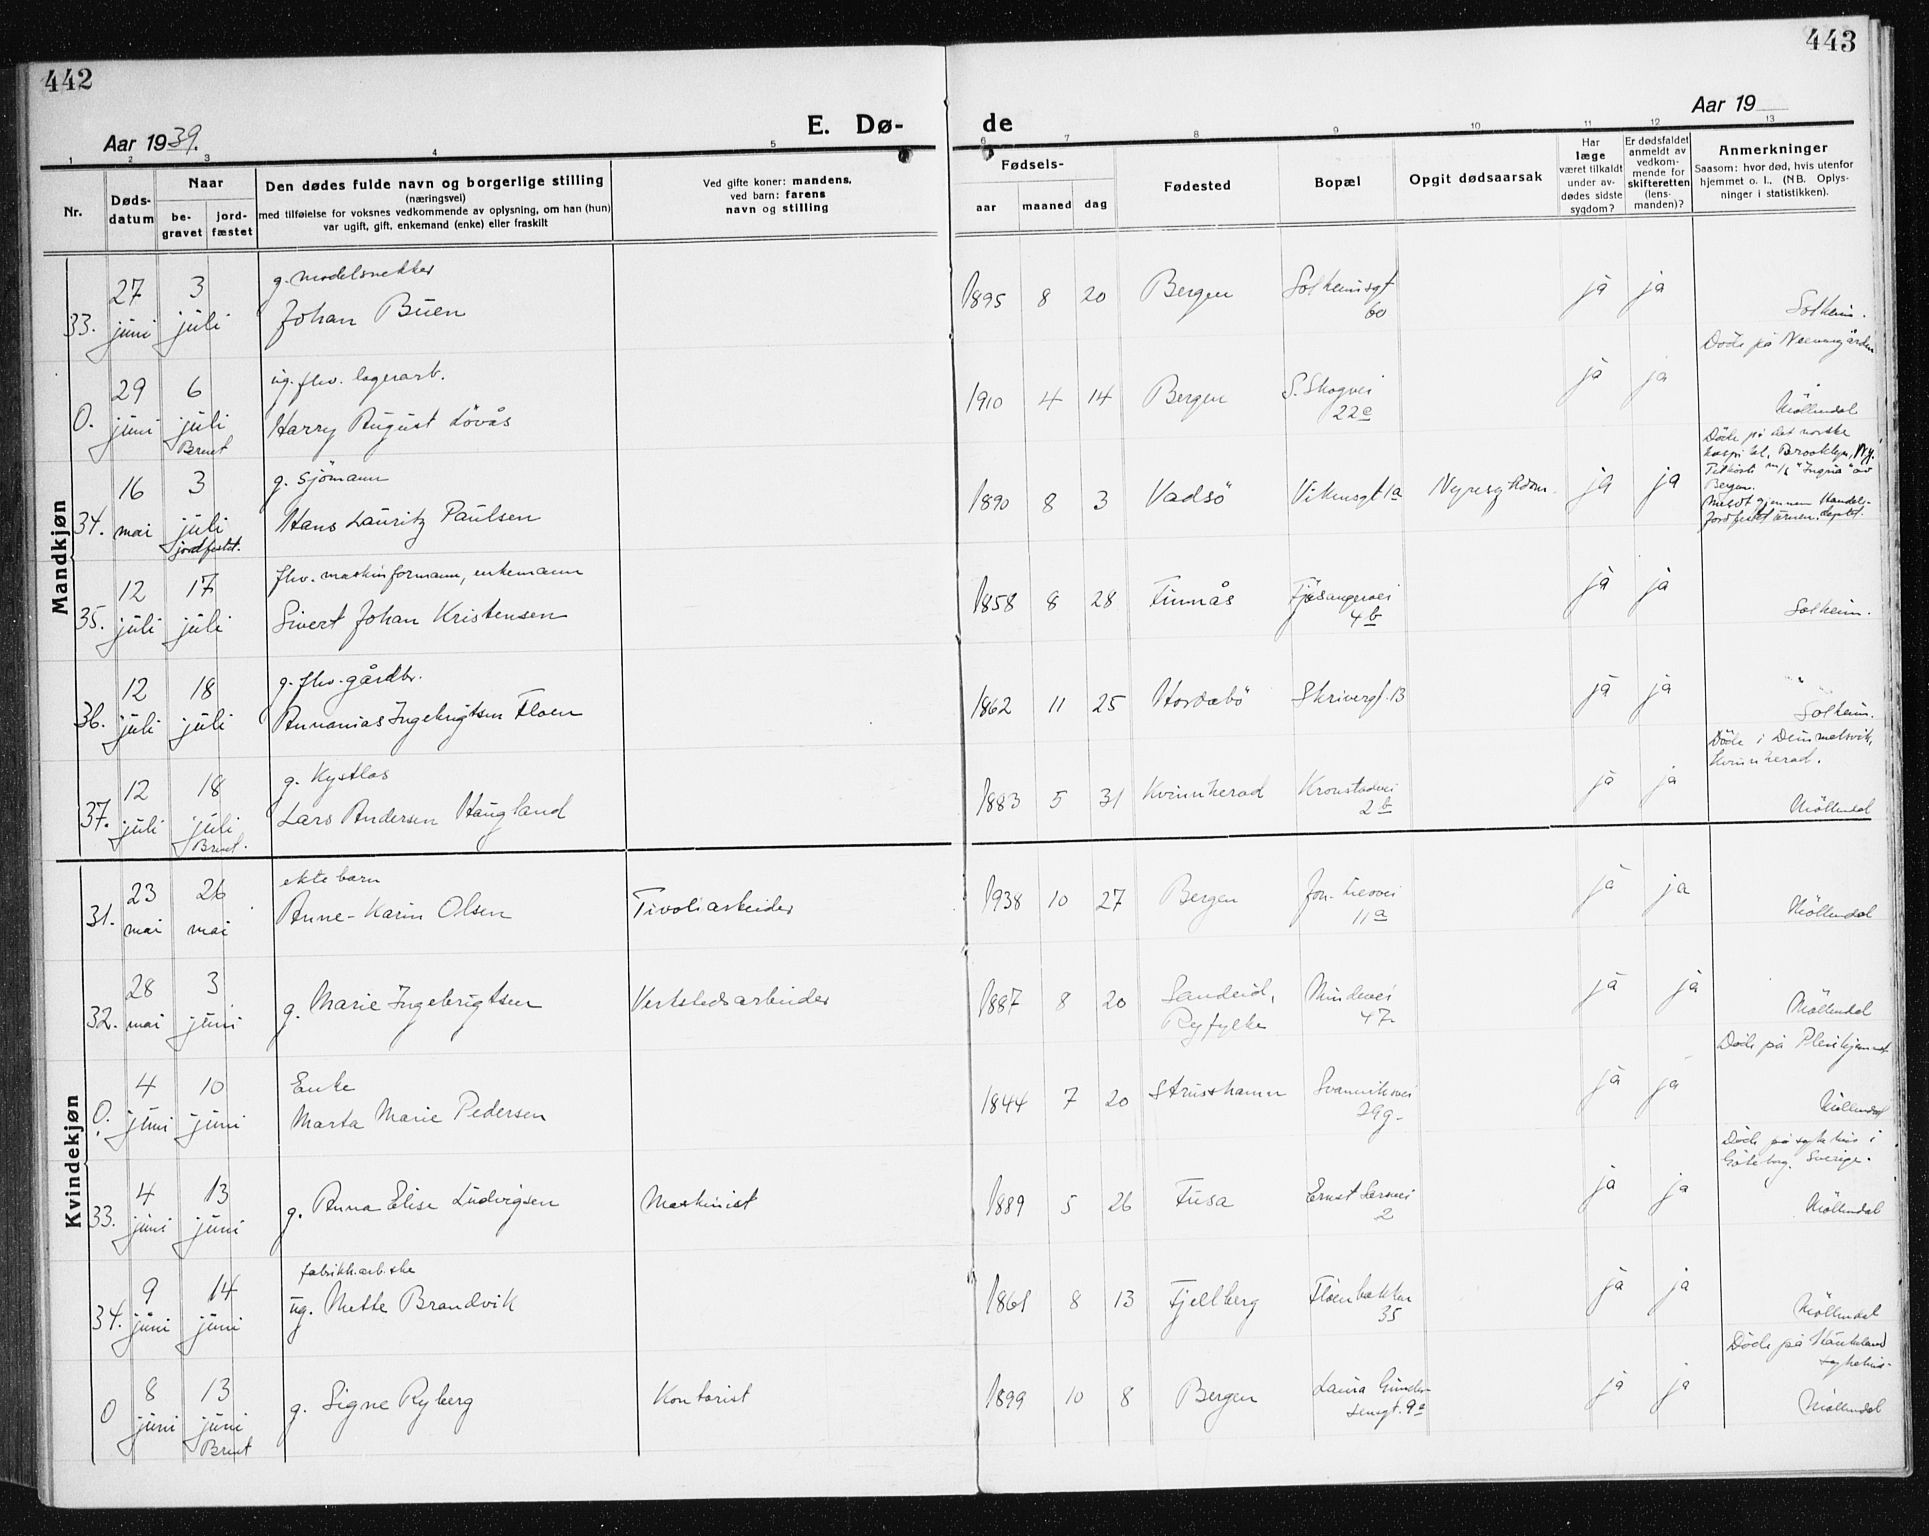 442
443
Aar 1939.
E. Dø-
de
Aar 19
1 2 3 4 5 6 7 8 9 10 11 12 13
Nr.
Døds-
datum
Naar
be-
gravet
jord-
fæstet
Den dødes fulde navn og borgerlige stilling
(næringsvei)
med tilføielse for voksnes vedkommende av oplysning, om han (hun)
var ugift, gift, enkemand (enke) eller fraskilt
Ved gifte koner: mandens,
ved barn: farens
navn og stilling
Fødsels-
aar
maaned
dag
Fødested
Bopæl
Opgit dødsaarsak
Har
læge
været tilkaldt
under av-
dødes sidste
sygdom?
Er dødsfaldet
anmeldt av
vedkom-
mende for
skifteretten
(lens-
manden)?
Anmerkninger
Saasom: hvor død, hvis utenfor
hjemmet o. l., (NB. Oplys-
ninger i statistikken).
Mandkjøn
33. 27 juni 3 juli
g. modelsnekker
Johan Buen
1895 8 20 Bergen Solheimsgt 60 ja ja
Solheim.
0. 29 juni 6 juli Brent
ug. fhv. lagerarb.
Harry August Lövås
1910 4 14 Bergen S. Skogvei 22a ja ja
Döde på
Möllendal
34. 16 mai 3 juli jordfestet.
g. sjömann
Hans Lauritz Paulsen
1890 8 3 Vadsö Vikensgt 1a ja ja
Döde på det norske
hospital, Brooklyn, N.y.
Tilhörte m/s "Ingria" av
Bergen.
Meldt gjennem Handels-
Jordfestet urnen. deptet.
35. 12 juli 17 juli
fhv. maskinformann, enkemann
Sivert Johan Kristensen
1858 8 28 Finnås Fjösangervei 4b ja ja
Solheim.
36. 12 juli 18 juli
g. fhv. gårdbr.
Annanias Ingebrigtsen Floen
1862 11 25 Hordabö Skrivergt. 13 ja ja
Solheim.
37. 12 juli 18 juli Brent.
g. Kystlos
Lars Andersen Haugland
1883 5 31 Kvinnherad Kronstadvei 2b ja ja
Döde i
Kvinnherad.
Möllendal
Kvindekjøn
31. 23 mai 26 mai
ekte barn
Anne-Karin Olsen
Tivoliarbeider
1938 10 27 Bergen 11a ja ja
Möllendal
32. 28 mai 3 juni
g. Marie Ingebrigtsen
Verkstedsarbeider
1887 8 20 Sandeid, Ryfylke Mindevei 47 ja ja
Möllendal
0. 4 juni 10 juni
Enke
Marta Marie Pedersen
1844 7 20 Strusshamn Svanevikvei 29g ja ja
Döde på Pleiehjemmet
Möllendal
33. 4 juni 13 juni
g. Anna Elise Ludvigsen
Maskinist
1889 5 26 Fusa Ernst Sarsvei 2 ja ja
Döde på sykehus i
Göteborg, Sverige.
Möllendal
34. 9 juni 14 juni
fabrikkarb.ske
ug. Mette Brandvik
1861 8 13 Fjelberg Flöenbakken 35 ja ja
Möllendal
0 8 juni 13 juni Brent
g. Signe Ryberg
Kontorist
1899 10 8 Bergen Laura Gunder-
sensgt. 9a ja ja
Döde på Haukeland
sykehus.
Möllendal